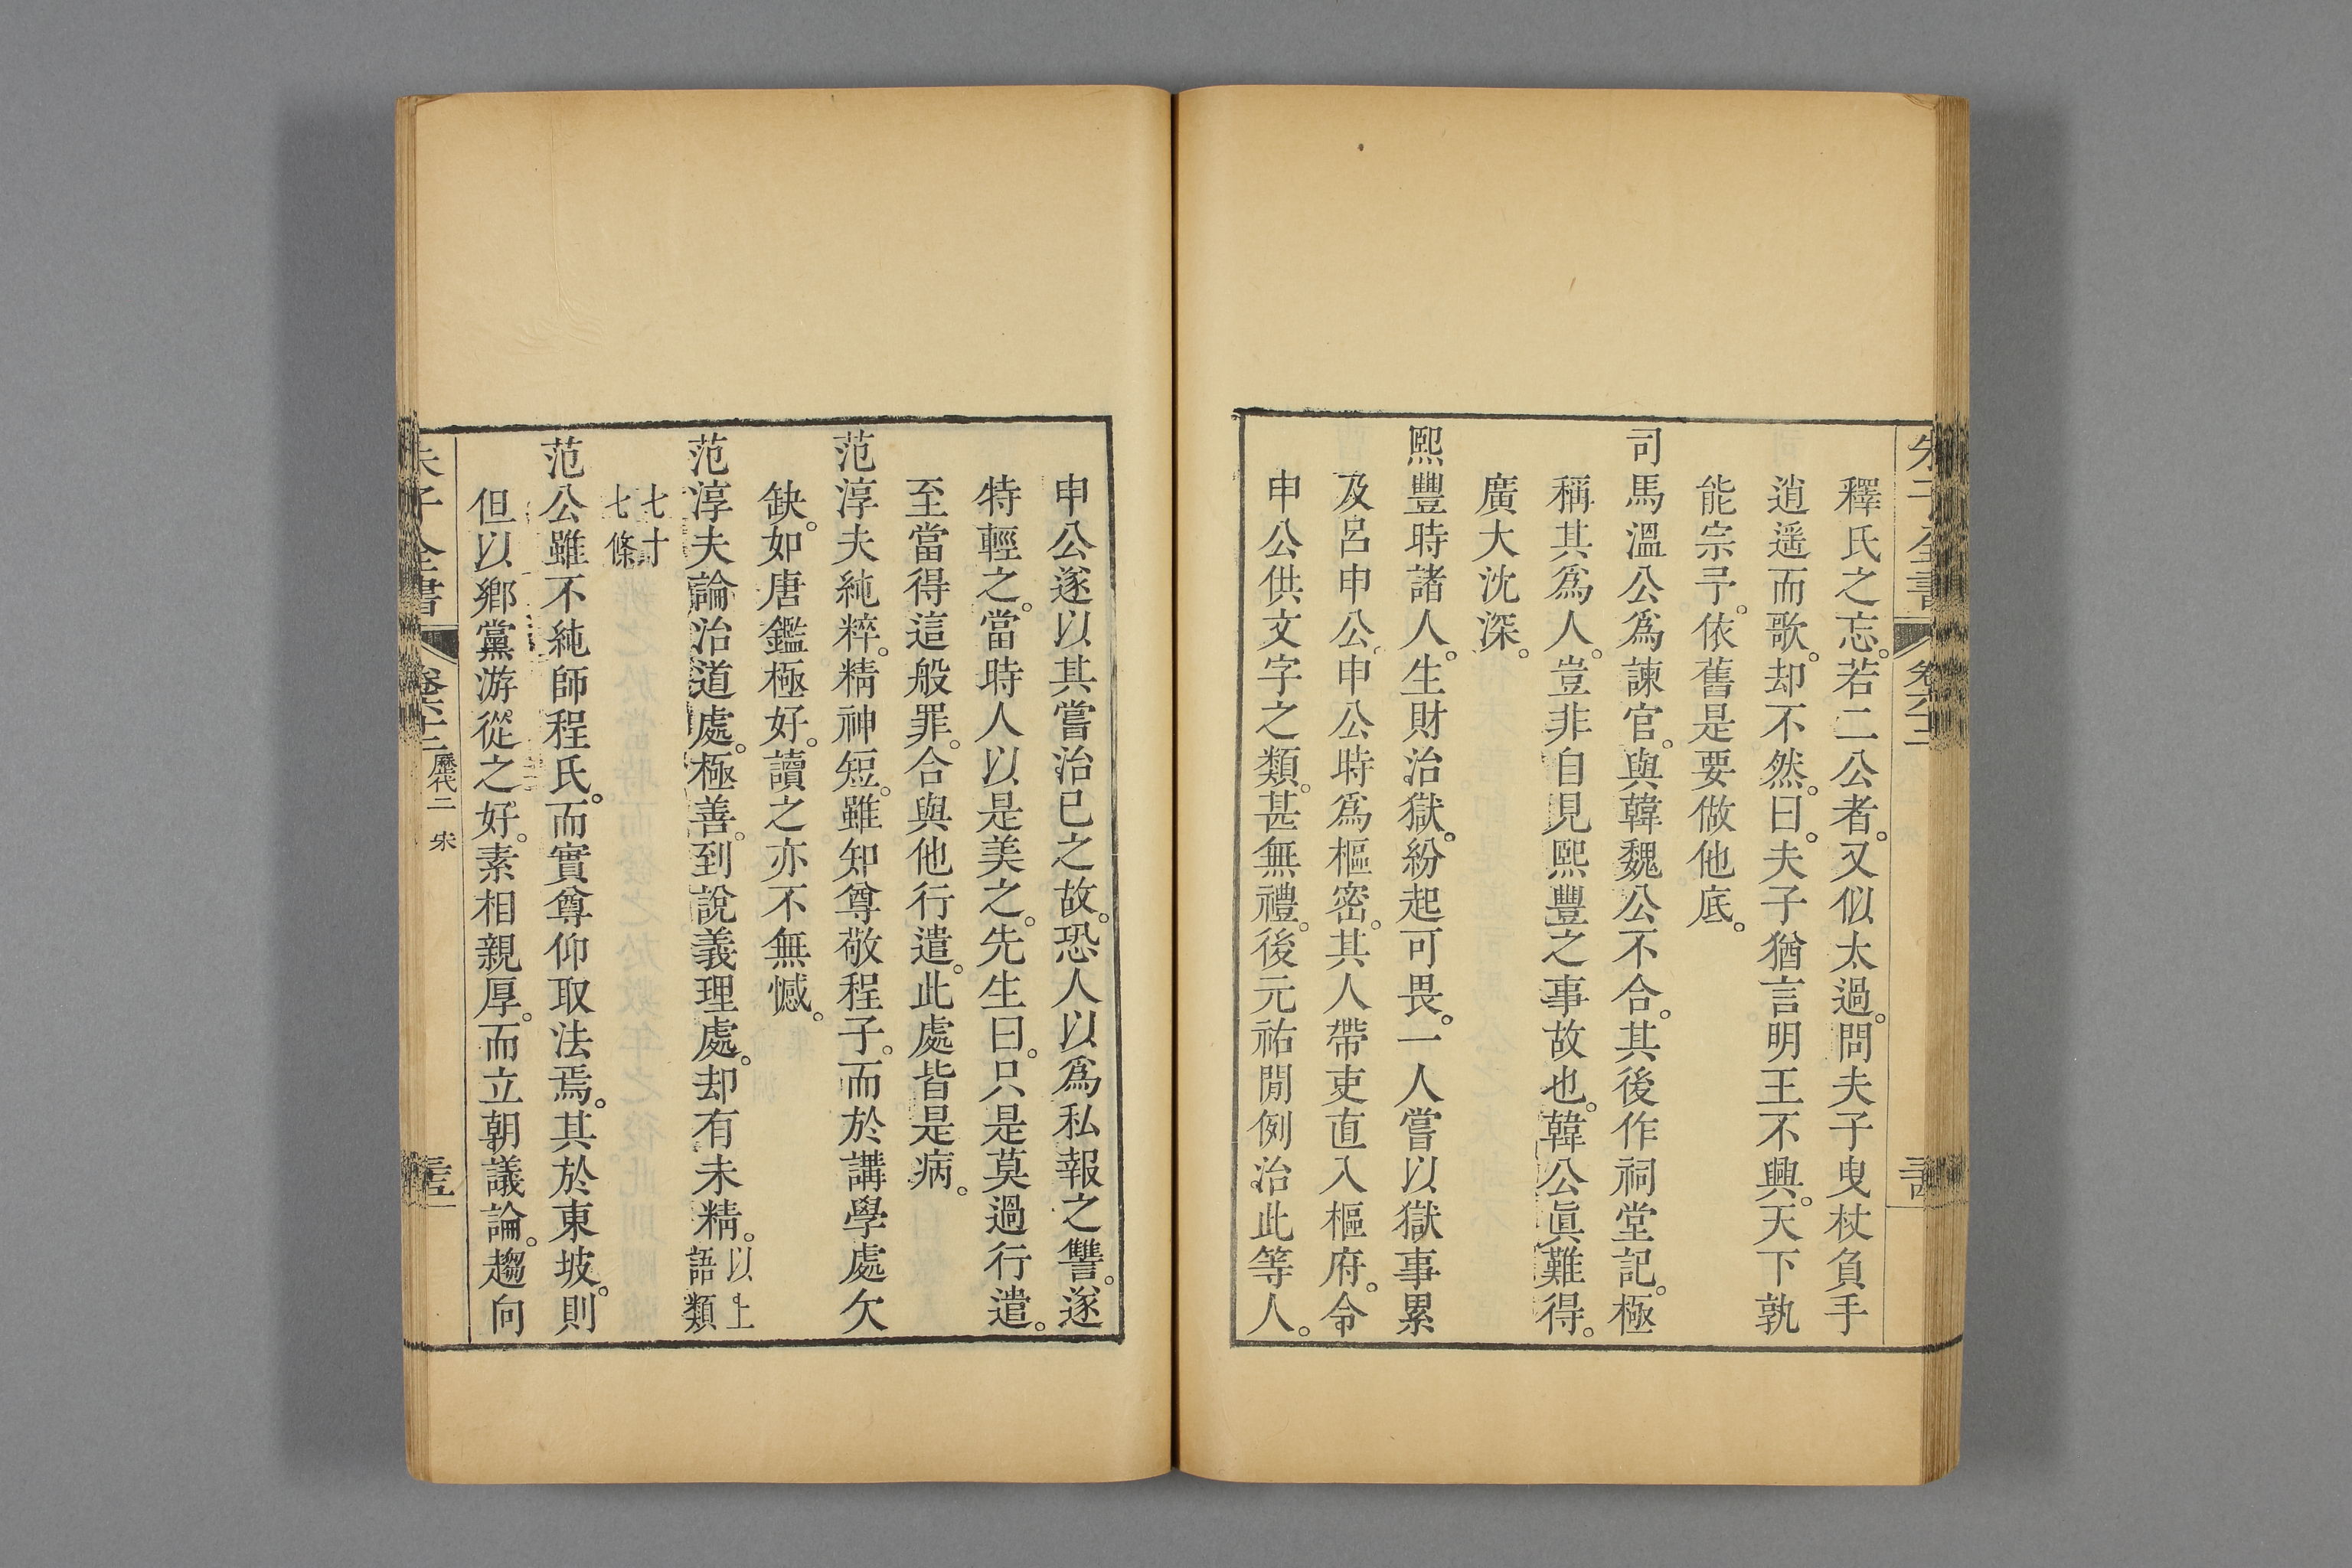 釋氏之忘。若二公者。又似太過。問夫子曳杖負手
逍遥而歌。却不然。曰。夫子猶言明王不興。天下孰
能宗予。依舊是要做他底。
司馬溫公爲諫官。與韓魏公不合。其後作祠堂記。極
稱其爲人。豈非自見熙豐之事故也。韓公眞難得。
廣大沈深。
熙豐時諸人。生財治獄。紛起可畏。一人嘗以獄事累
及呂申公。申公時爲樞密。其人帶吏直入樞府。令
申公供文字之類。甚無禮。後元祐閒例治此等人。
申公遂以其嘗治已之故。恐人以爲私報之讐。遂
特輕之。當時人以是美之。先生曰。只是莫過行遣。
至當得這般罪。合與他行遣。此處皆是病。
范淳夫純粹。精神短。雖知尊敬程子。而於講學處欠
缺。如唐鑑極好。讀之亦不無憾。
范淳夫論治道處。極善。到說義理處。却有未精。以上語類
七十七條
范公雖不純師程氏。而實尊仰取法焉。其於東坡。則
但以鄉黨游從之好。素相親厚。而立朝議論。趨向
朱子全書
卷六十二
歷代二 宋